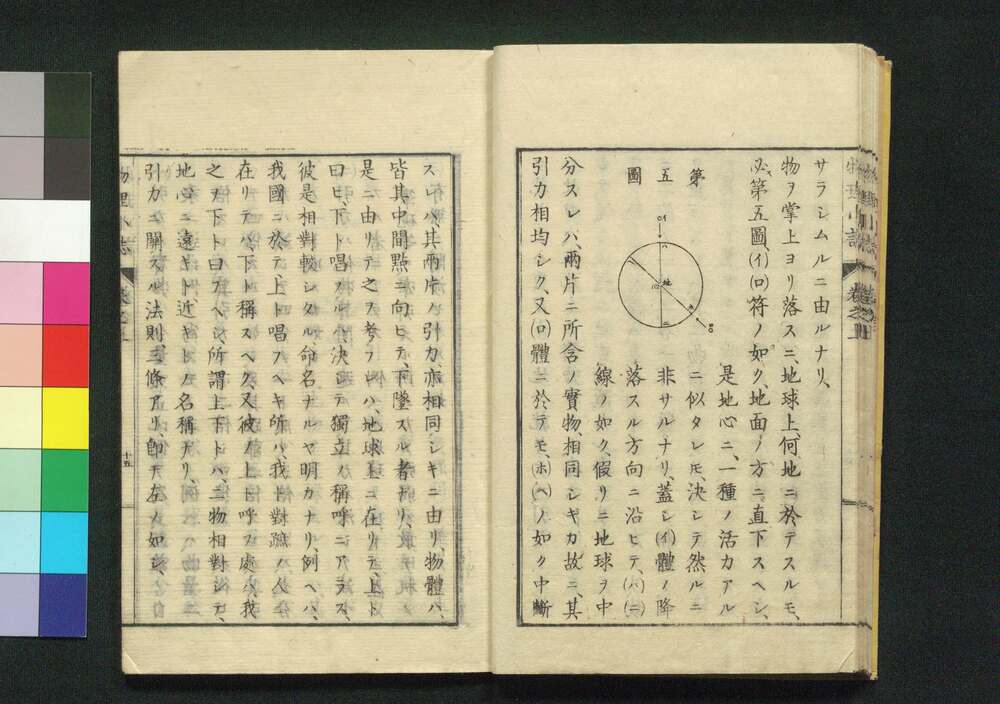 サラシムルニ由ルナリ、
物ヲ掌上ヨリ落スニ、地球上、何地ニ於テスルモ、
必、第五圖、(イ)(ロ)符ノ如ク、地面ノ方ニ、直下スヘシ、
第五圖
(イ)
(ロ)
地心
是地心ニ、一種ノ活力アル
ニ似タレモ、決シテ然ルニ
非サルナリ、蓋シ(イ)體ノ降
落スル方向ニ沿ヒテ、(ハ)(ニ)
線ノ如ク、假リニ地球ヲ中
分スレハ、兩片ニ所含ノ實物、相同シキカ故ニ、其
引力相均シク、又(ロ)體ニ於テモ、(ホ)(ヘ)ノ如ク中斷
スレハ、其兩片ノ引力亦相同シキニ由リ、物體ハ、
皆其中間點ニ向ヒテ、下墜スル者ナリ、
是ニ由リテ之ヲ考フレハ、地球上ニ在リテ、上ト
曰ヒ、下ト唱フル、決シテ獨立ノ稱呼ニアラス、
彼是相對較シタル命名ナルヤ明カナリ、例ヘハ、
我國ニ於テ、上ト唱フヘキ所ハ、我カ對蹠ノ人
在リテハ、下ト稱スヘク、又彼ノ上ト呼フ處ハ、我
之ヲ下ト曰フヘシ、所謂上下トハ、二物相對シテ、
地心ニ遠キト、近キトノ名稱ナリ、
引力ニ關スル法則、三條アリ、即チ左ノ如シ、
物理小誌
十五